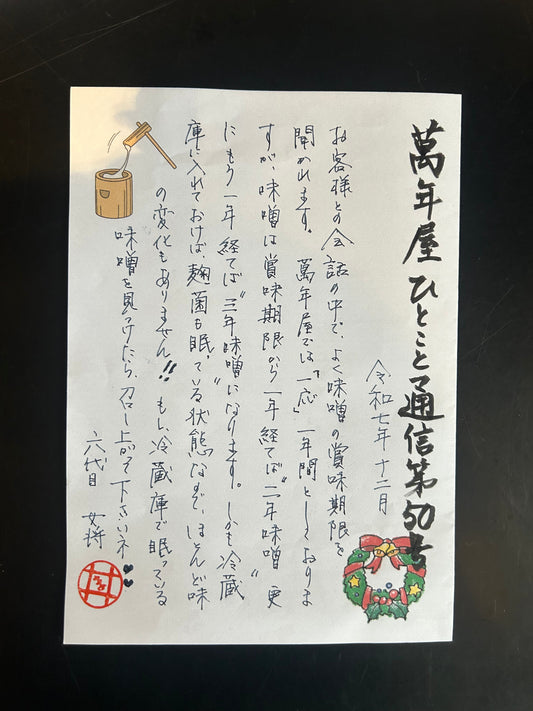 萬年屋ひとこと通信第50号
令和七年十二月
お客様との会話の中で、よく味噌の賞味期限を
聞かれます。萬年屋では「一応」一年間としておりま
すが、味噌は賞味期限から一年経てば"二年味噌"更
にもう一年経てば"三年味噌"になります。しかも冷蔵
庫に入れておけば、麹菌も眠っている状態なので、ほとんど味
の変化もありません!!もし、冷蔵庫で眠っている
味噌を見つけたら、召し上がって下さいネ
六代目 女将